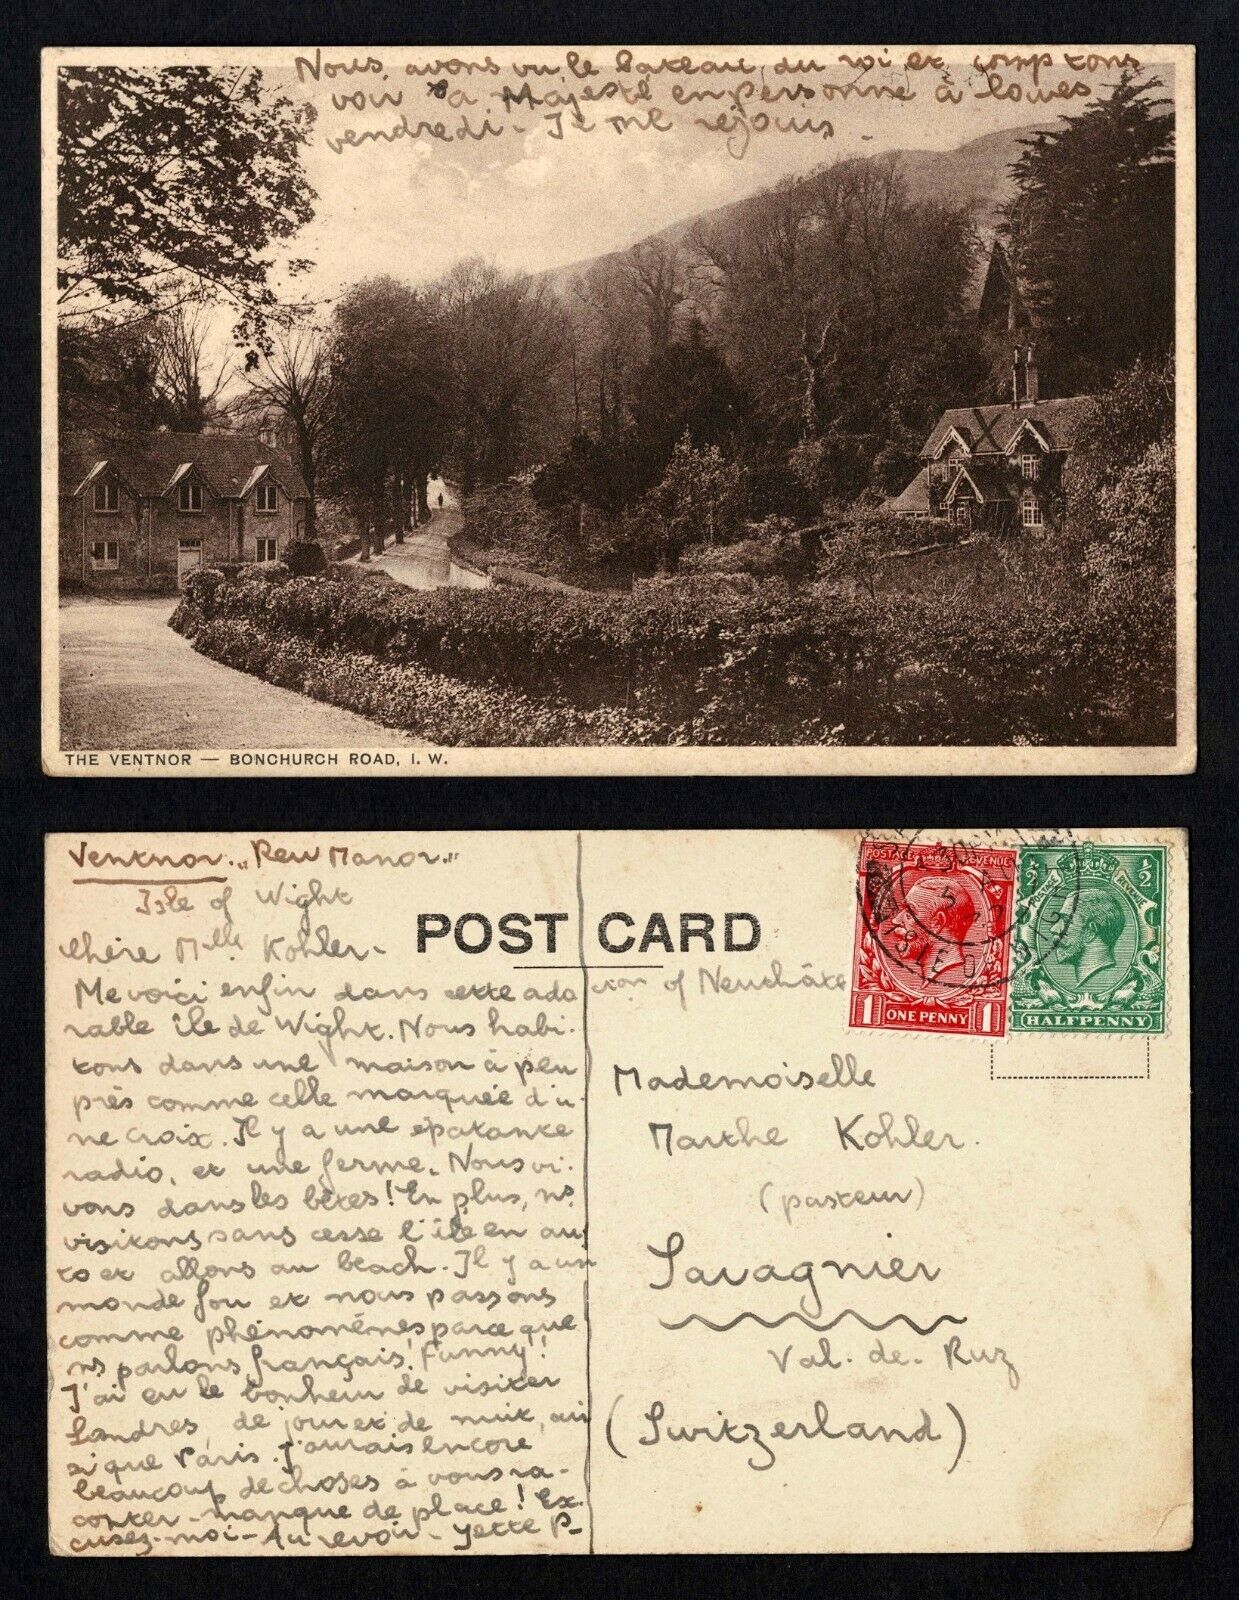 Nous avons vu le bateau du roi et comptons
voir sa Majesté en personne à Cowes
vendredi - Je me réjouis -
THE VENTNOR — BONCHURCH ROAD, I. W.
Ventnor. „Rew Manor"
Isle of Wight
POST CARD
Chère Mlle. Kohler-
Me voici enfin dans cette ado
rable île de Wight. Nous habi-
tons dans une maison à peu
près comme celle marquée d'u-
ne croix. Il y a une épatante
radio, et une ferme. Nous vi-
vons dans les bêtes! En plus, ns
visitons sans cesse l'île en au
to et allons au beach. Il y a un
monde fou et nous passons
comme phénomènes parce que
ns parlons français! Funny!
J'ai eu le bonheur de visiter
Londres, de jour et de nuit, ain
si que Paris. J'aurais encore
beaucoup de choses à vous ra-
conter - manque de place! Ex-
cusez-moi - Au revoir - Yette P-
of Neuchâte
Mademoiselle
Marthe Kohler.
(pasteur)
Savagnier
Val-de-Ruz
(Switzerland)
POSTAGE REVENUE
1 ONE PENNY 1
½ POSTAGE REVENUE ½
HALFPENNY